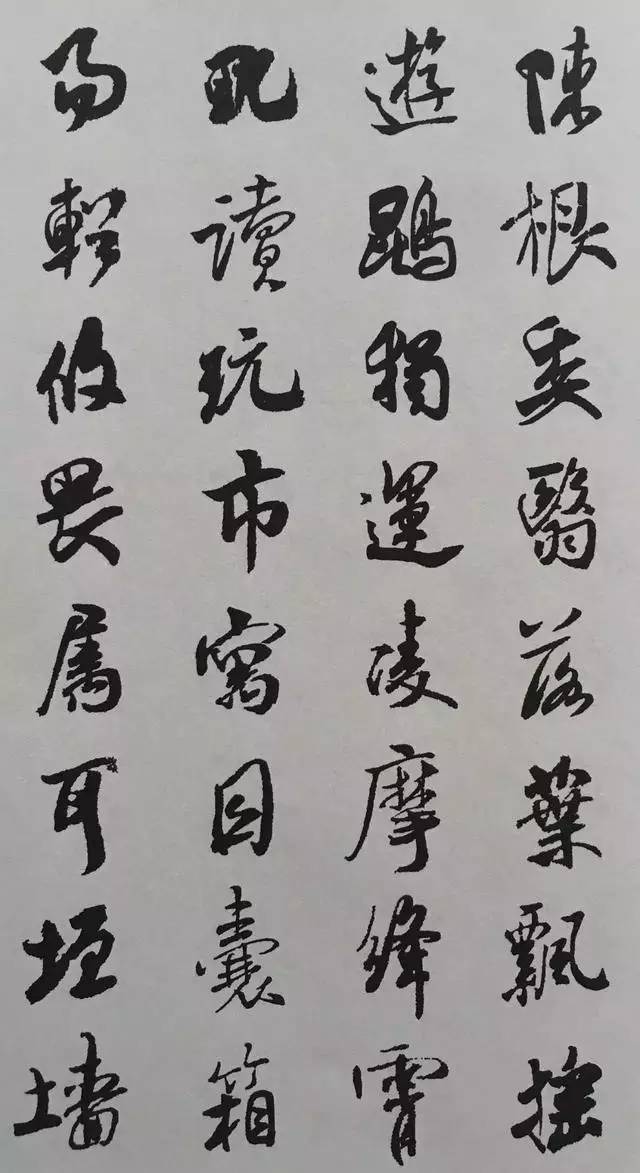 陳根委翳落葉飄搖
遊鵾獨運凌摩絳霄
耽讀翫市寓目囊箱
易輶攸畏屬耳垣墻